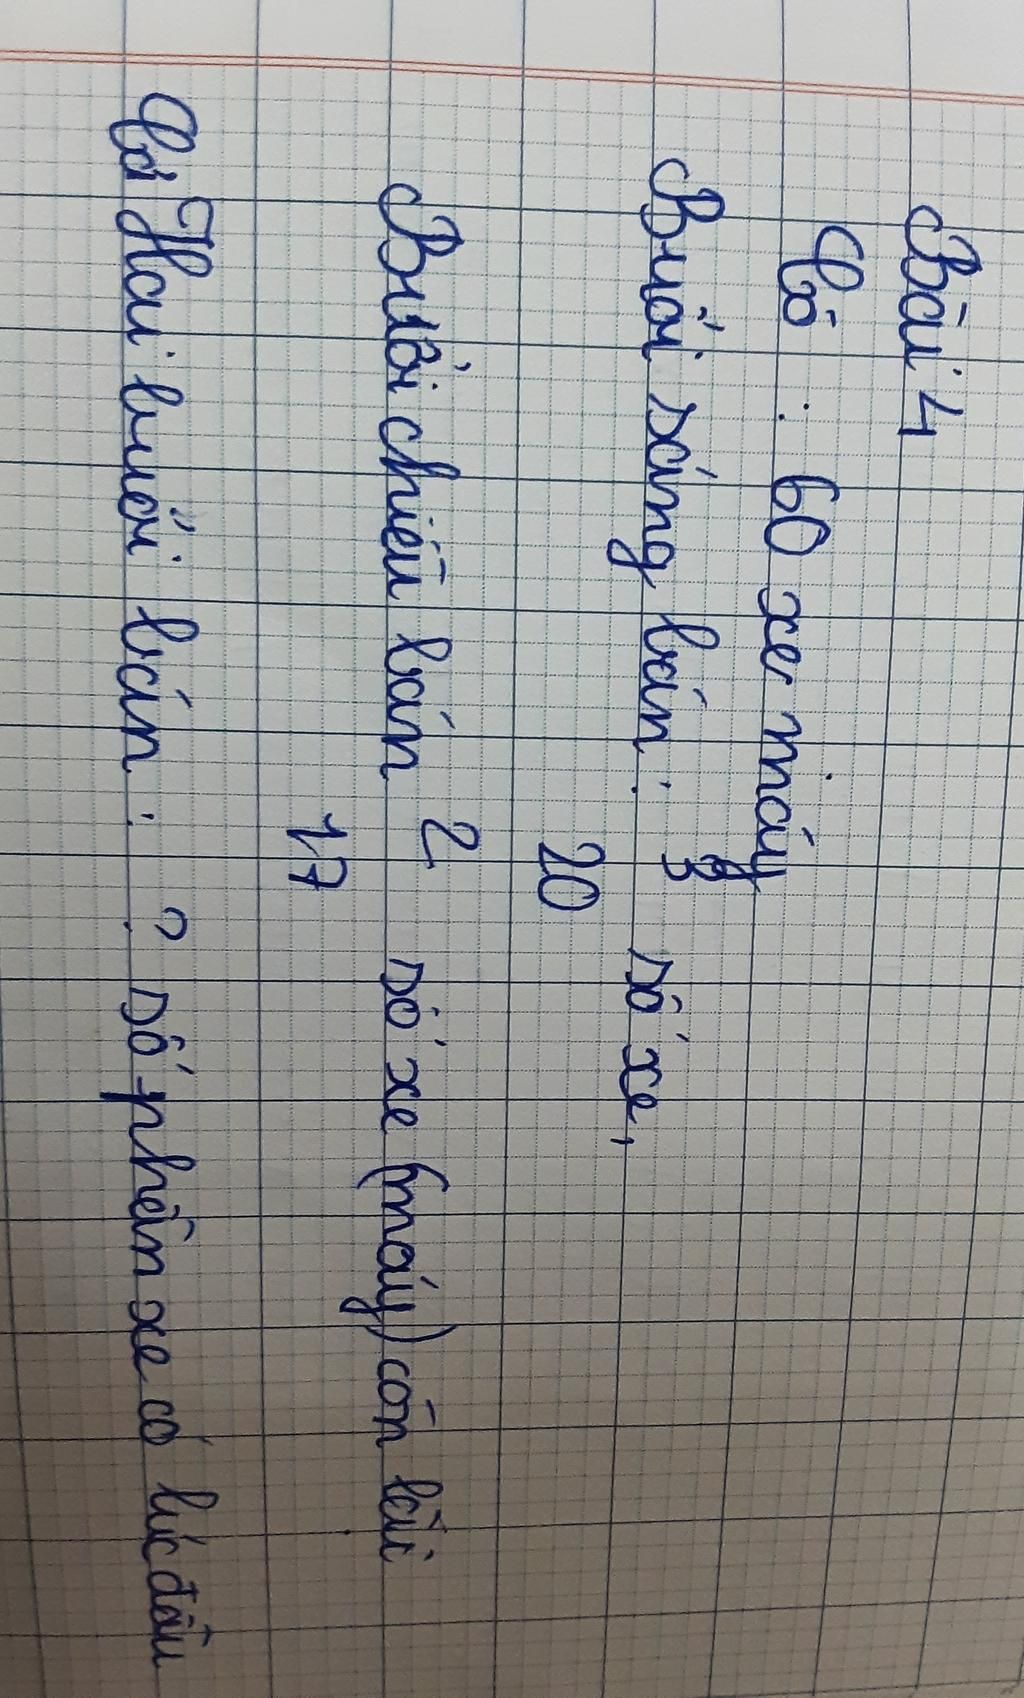 Bài 4
Có : 60 xe máy
Buổi sáng bán : 3 số xe,
20
Buổi chiều bán 2 số xe (máy) còn lại
17
Cả Hai buổi bán : ? số phần xe có lúc đầu